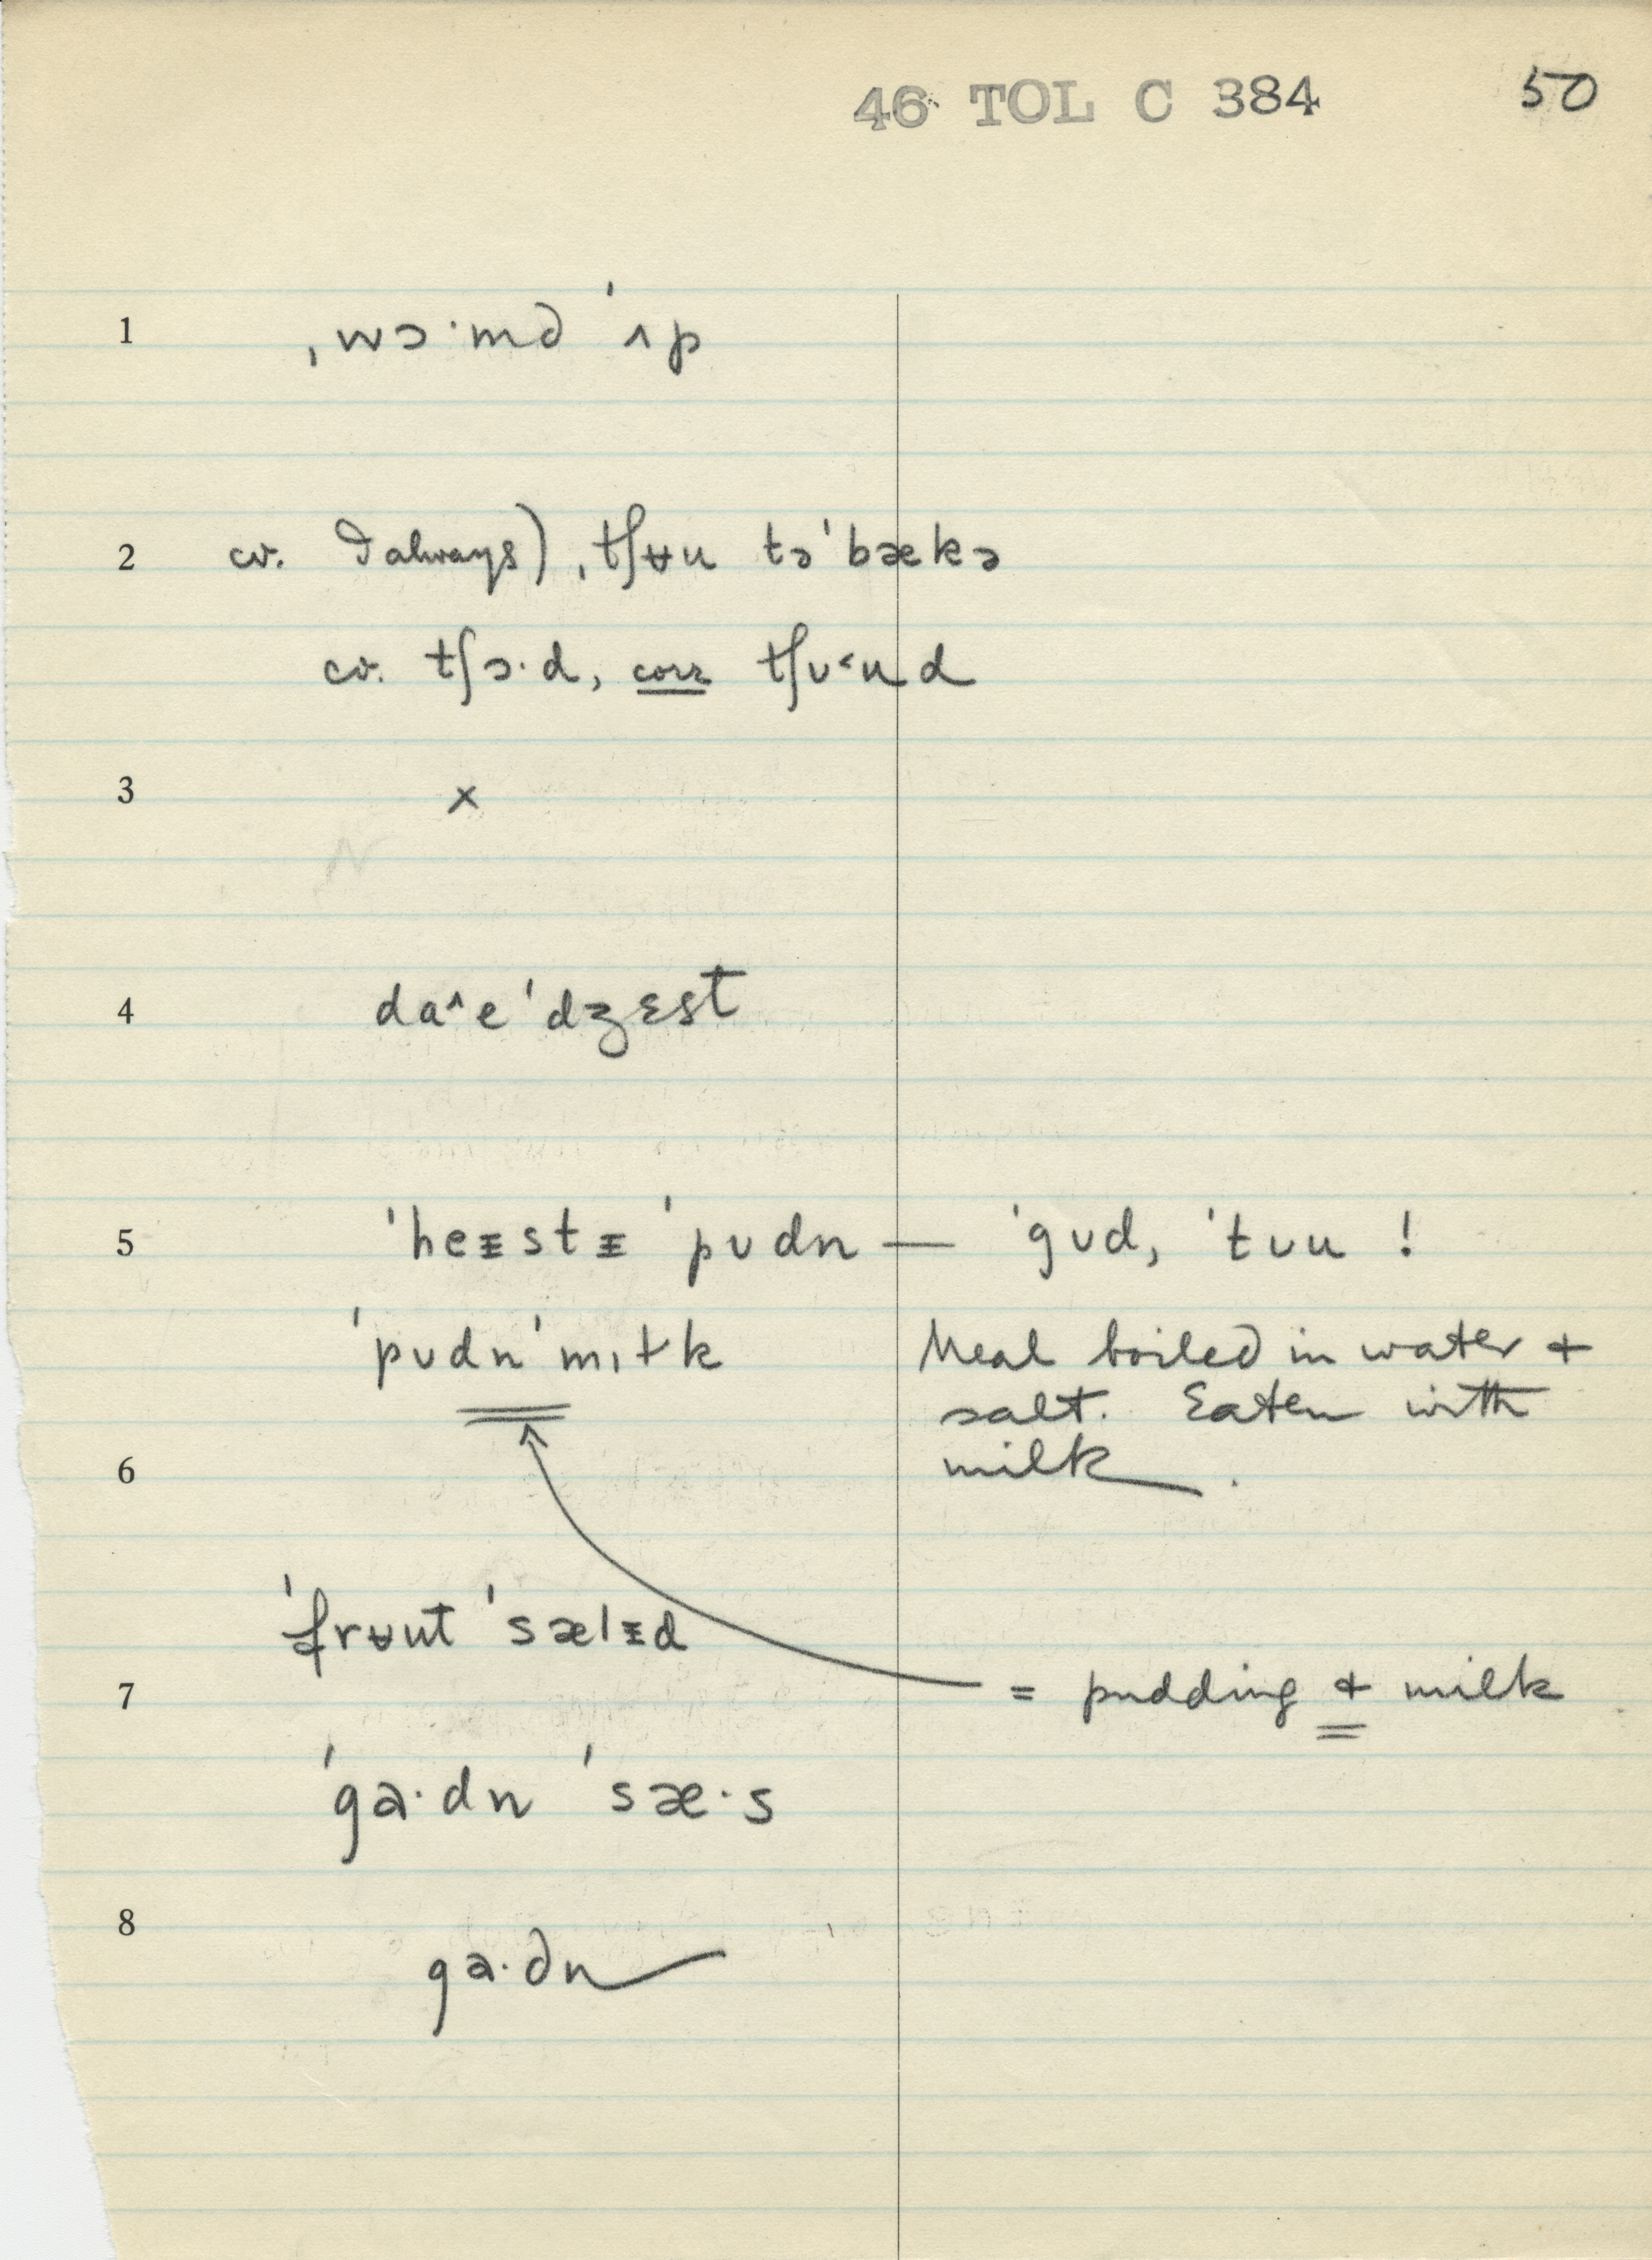 46 TOL C 384 50
1 ˌwɔ·md ˈʌp
2 cv. (always), ˌtʃʉu təˈbækə
cv. tʃɔ·d, corr tʃʊ˂ud
3 ×
4 da˄eˈdʒɛst
5 ˈheᵻstᵻ ˈpʊdn — ˈgʊd, ˈtʊu !
ˈpʊdnˈmɪɫk Meal boiled in water +
salt. Eaten with
6 milk.
ˈfrʉut ˈsælᵻd
7 = pudding + milk
ˈga·dn ˈsæ·s
8
ga·dn